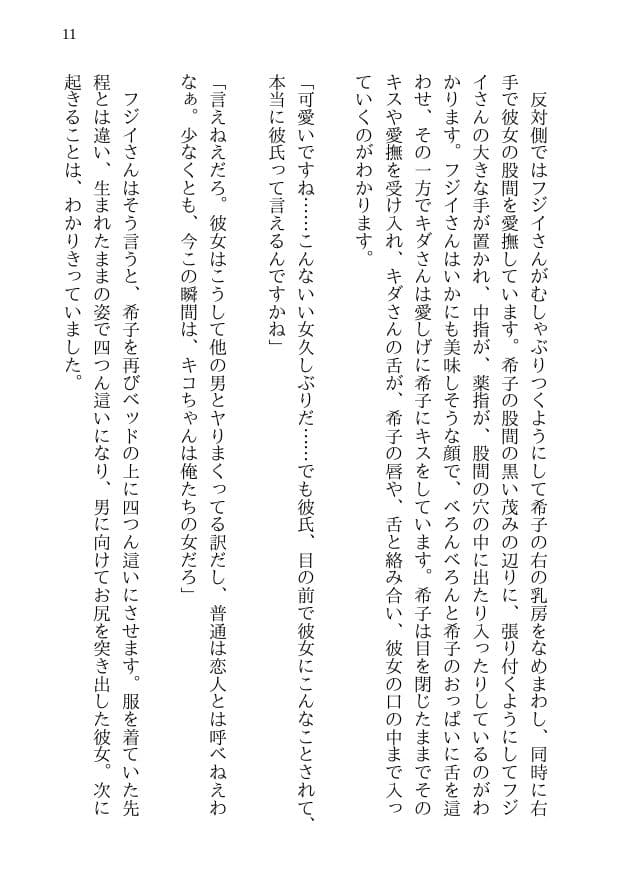 11
　反対側ではフジイさんがむしゃぶりつくようにして希子の右の乳房をなめまわし、同時に右
手で彼女の股間を愛撫しています。希子の股間の黒い茂みの辺りに、張り付くようにしてフジ
イさんの大きな手が置かれ、中指が、薬指が、股間の穴の中に出たり入ったりしているのがわ
かります。フジイさんはいかにも美味しそうな顔で、べろんべろんと希子のおっぱいに舌を這
わせ、その一方でキダさんは愛しげに希子にキスをしています。希子は目を閉じたままでその
キスや愛撫を受け入れ、キダさんの舌が、希子の唇や、舌と絡み合い、彼女の口の中まで入っ
ていくのがわかります。
「可愛いですね……こんないい女久しぶりだ……でも彼氏、目の前で彼女にこんなことされて、
本当に彼氏って言えるんですかね」
「言えねえだろ。彼女はこうして他の男とヤりまくってる訳だし、普通は恋人とは呼べねえわ
なぁ。少なくとも、今この瞬間は、キコちゃんは俺たちの女だろ」
　フジイさんはそう言うと、希子を再びベッドの上に四つん這いにさせます。服を着ていた先
程とは違い、生まれたままの姿で四つん這いになり、男に向けてお尻を突き出した彼女。次に
起きることは、わかりきっていました。